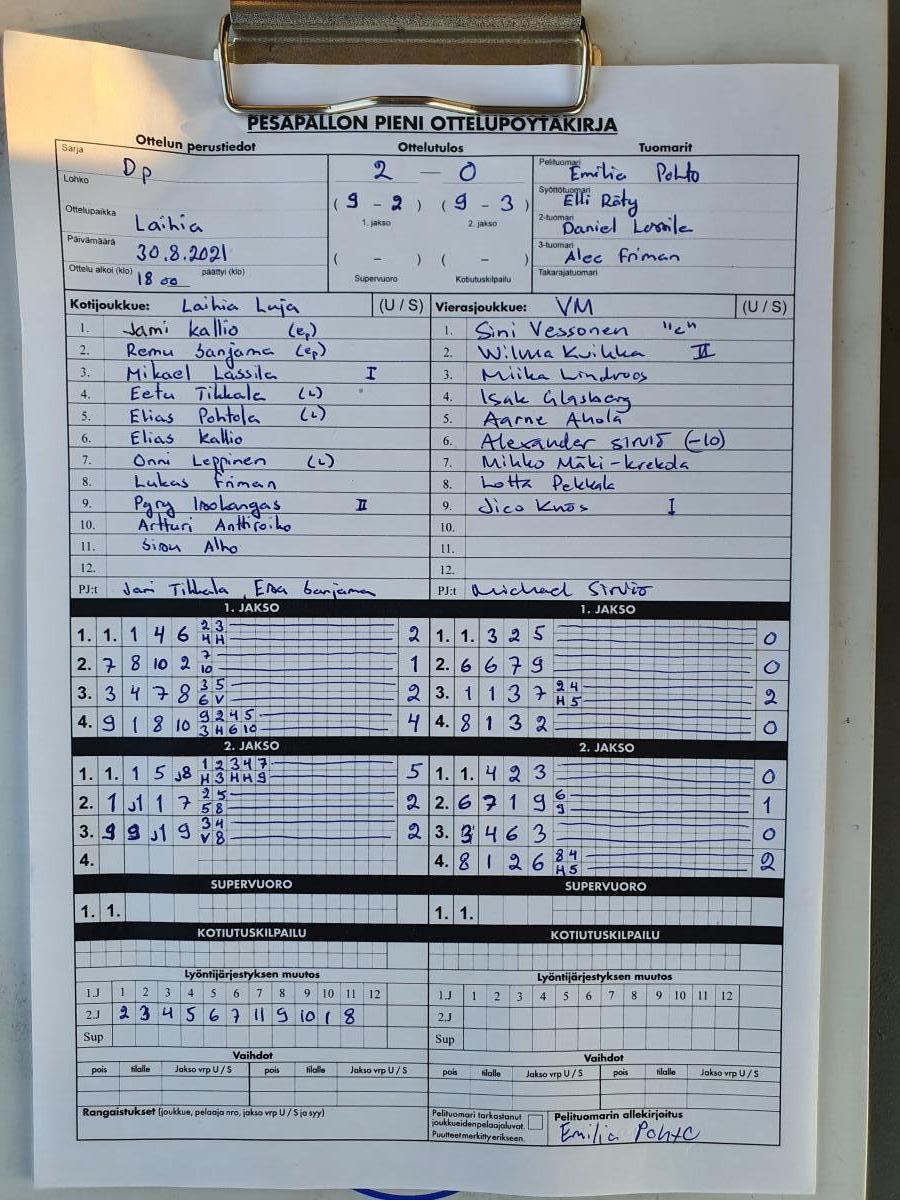 PESÄPALLON PIENI OTTELUPÖYTÄKIRJA
Ottelun perustiedot Ottelutulos Tuomarit
Sarja Dp 2 — 0 Pelituomari Emilia Pohto
Lohko Syöttötuomari Elli Räty
(9 - 2) (9 - 3)
Ottelupaikka Laihia 1. jakso 2. jakso 2-tuomari Daniel
Päivämäärä 30.8.2021 3-tuomari Alec Friman
(-) (-)
Ottelu alkoi (klo) 18 00 päättyi (klo) Supervuoro Kotiutuskilpailu Takarajatuomari
Kotijoukkue: Laihia Luja (U / S) Vierasjoukkue: VM (U / S)
1. Jami Kallio (ep) 1. Sini Vessonen "c"
2. Remu Sanjama (ep) 2. Wilma Kuikka II
3. Mikael Lassila I 3. Miika Lindroos
4. Eetu Tikkala (L) 4. Isak Glasberg
5. Elias Pohtola (L) 5. Aarne Ahola
6. Elias Kallio 6. Alexander Sirviö (-10)
7. Onni Leppinen (L) 7. Mikko Mäki-Krekola
8. Lukas Friman 8. Lotta Pekkala
9. Pyry Isokangas II 9. Jico Knos I
10. Artturi Anttiroiko 10.
11. Alho 11.
12. 12.
PJ:t Jari Tikkala, Esa Sanjama PJ:t Michael Sirviö
1. JAKSO 1. JAKSO
1. 1. 1 4 6 2 3 H H 2 1. 1. 3 2 5 0
2. 7 8 10 2 7 10 1 2. 6 6 7 9 0
3. 3 4 7 8 3 5 6 V 2 3. 1 1 3 7 2 4 H 5 2
4. 9 1 8 10 9 2 4 5 3 H 6 10 4 4. 8 1 3 2 0
2. JAKSO 2. JAKSO
1. 1. 1 5 J8 1 2 3 4 7 H 3 H H 9 5 1. 1. 4 2 3 0
2. 1 J1 1 7 2 5 5 8 2 2. 6 7 1 9 6 9 1
3. 9 9 J1 9 3 4 V 8 2 3. 3 4 6 3 0
4. 4. 8 1 2 6 8 4 H 5 2
SUPERVUORO SUPERVUORO
1. 1. 1. 1.
KOTIUTUSKILPAILU KOTIUTUSKILPAILU
Lyöntijärjestyksen muutos Lyöntijärjestyksen muutos
1.J 1 2 3 4 5 6 7 8 9 10 11 12 1.J 1 2 3 4 5 6 7 8 9 10 11 12
2.J 2 3 4 5 6 7 11 9 10 1 8 2.J
Sup Sup
Vaihdot Vaihdot
pois tilalle Jakso vrp U / S pois tilalle Jakso vrp U / S pois tilalle Jakso vrp U / S pois tilalle Jakso vrp U / S
Rangaistukset (joukkue, pelaaja nro, jakso vrp U / S ja syy) Pelituomari tarkastanut Pelituomarin allekirjoitus
joukkueidenpelaajaluvat.
Puutteet merkitty erikseen. Emilia Pohto